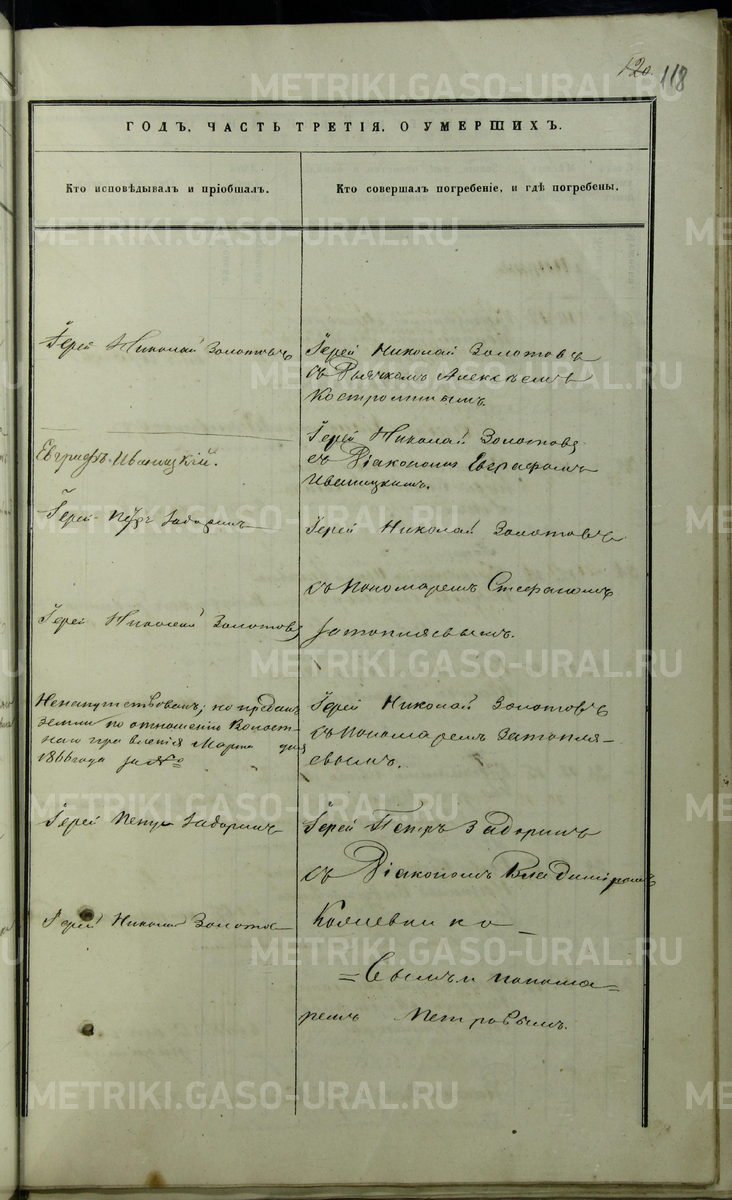 120. 118
ГОДЪ, ЧАСТЬ ТРЕТІЯ, О УМЕРШИХЪ.
Кто исповѣдывалъ и пріобщалъ.
Кто совершалъ погребеніе, и гдѣ погребены.
Іерей Николай Золотовъ
Іерей Николай Золотовъ
съ Дьячкомъ Алексѣемъ
Костроминымъ.
Евграфъ Иваницкій.
Іерей Николай Золотовъ
съ Діакономъ Евграфомъ
Иваницкимъ.
Іерей Петръ Задоринъ
Іерей Николай Золотовъ
съ Пономаремъ Стефаномъ
Іерей Николай Золотовъ
Затопляевымъ.
Ненапутствованъ; но преданъ
земли по отношенію Волост-
наго правленія Марта дня
1866 года за №
Іерей Николай Золотовъ
съ Пономаремъ Затопля-
евымъ.
Іерей Петръ Задоринъ
Іерей Петръ Задоринъ
съ Діакономъ Владиміромъ
Іерей Николай Золотов
=вымъ и понома=
ремъ Петровымъ.
METRIKI.GASO-URAL.RU